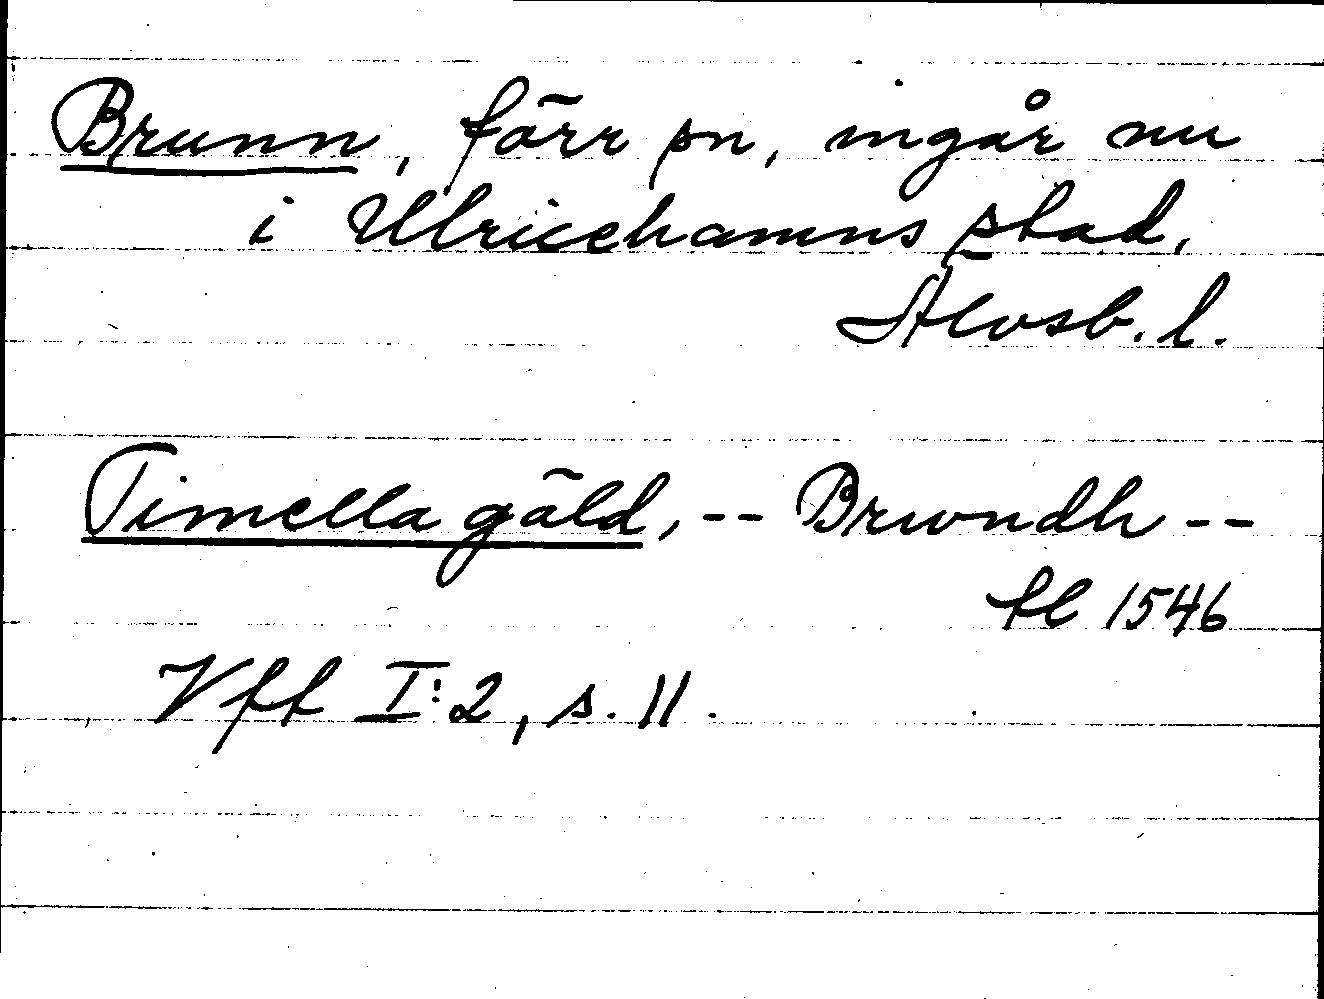 Brunn, förr sn, ingår nu
i Ulricehamns stad,
Älvsb. l.
Timella gäld, -- Brwndh --
tl 1546
Vff I:2, s. 11.